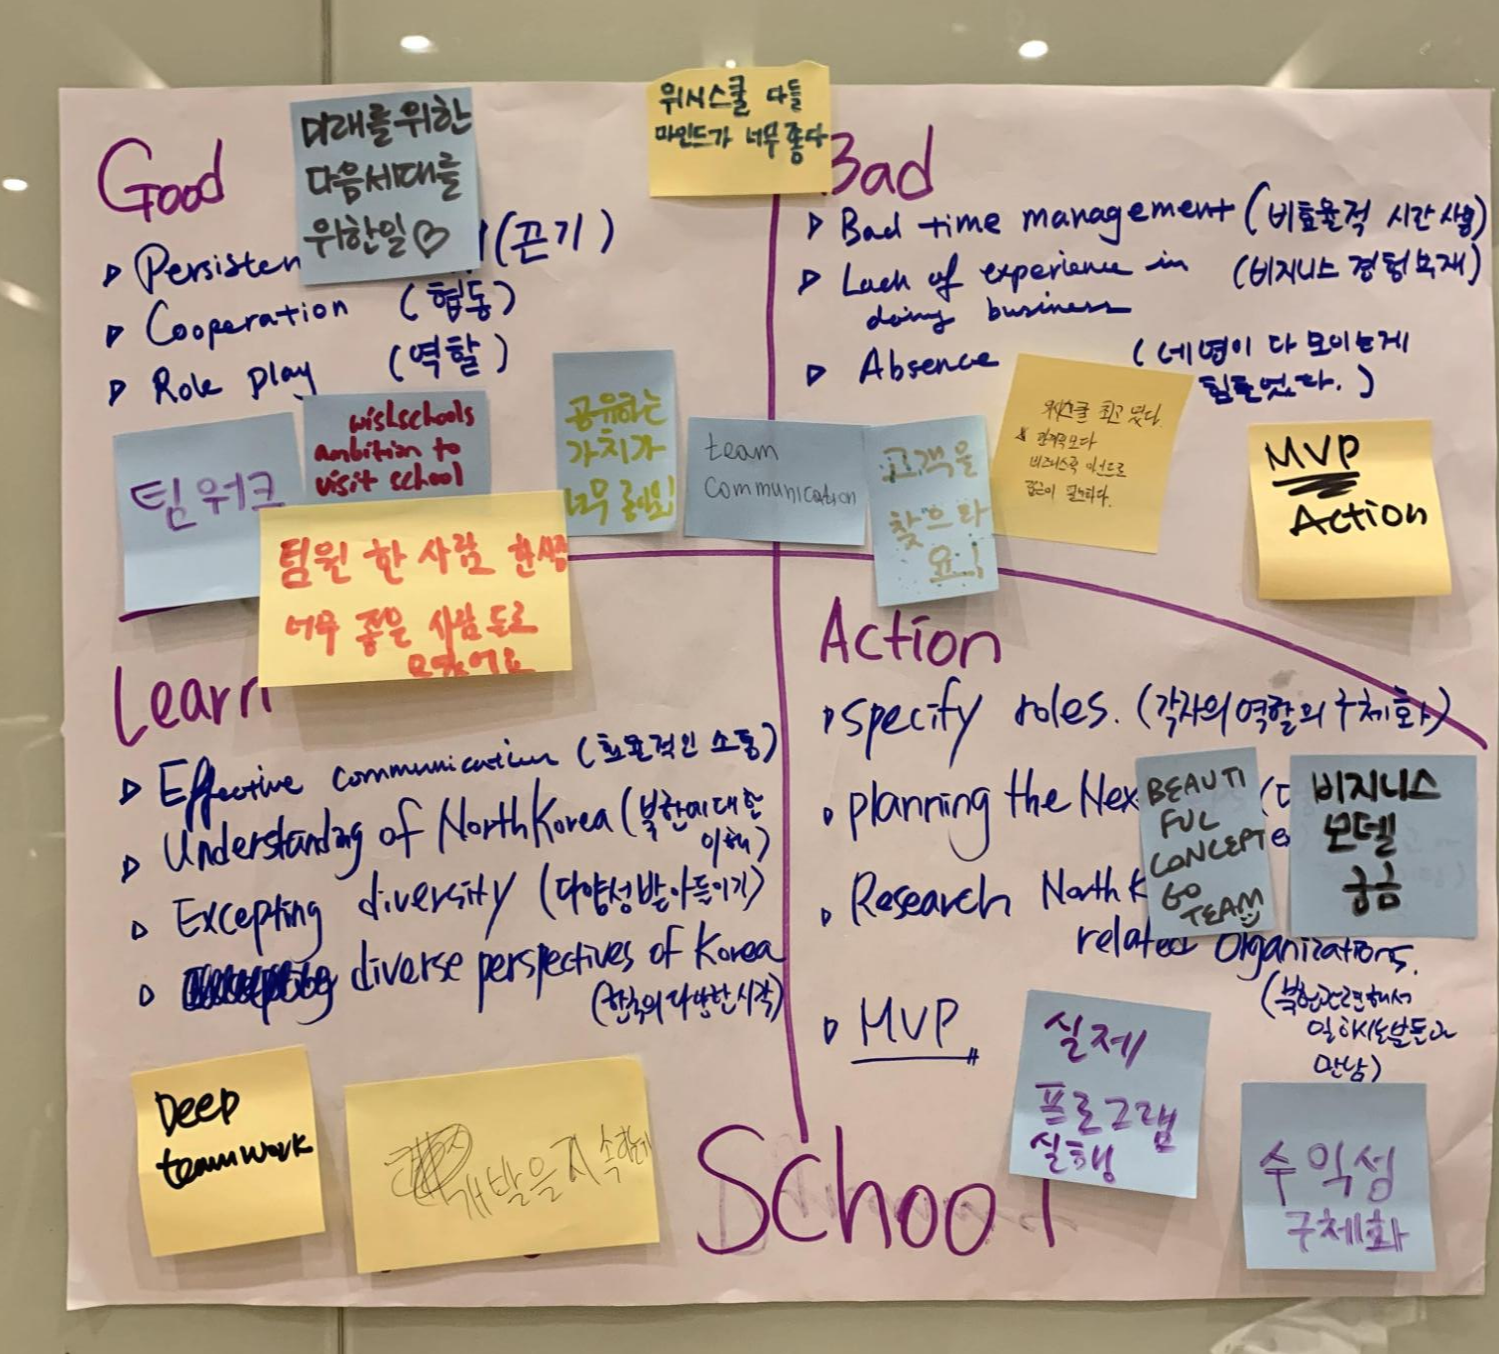 Good
미래를 위한
다음세대를
위한일♡
위시스쿨 다들
마인드가 너무 좋다
Bad
▷ Persisten
(끈기)
▷ Cooperation (협동)
▷ Role play (역할)
▷ Bad time management (비효율적 시간 사용)
▷ Lack of experience in
doing business
(비지니스 경험 부재)
▷ Absence
(네명이 다 모이는게
힘들었다.)
팀워크
wishschools
ambition to
visit school
공유하는
가치가
너무 좋아요!
team
communication
고객을
찾으라
요!
위시스쿨 최고 였다.
MVP
Action
팀원 한 사람 한 사람
너무 좋은 사람들로
모였어요
Learn
▷ Effective communication (효율적인 소통)
▷ Understanding of North Korea (북한에 대한
이해)
▷ Excepting diversity (다양성 받아들이기)
▷ diverse perspectives of Korea
(한국의 다양한 시각)
Action
▷ specify roles. (각자의 역할의 구체화)
• planning the Nex
BEAUTI
FUL
CONCEPT
GO
TEAM
비지니스
모델
궁금
▷ Research North K
related organizations.
(북한관련해서
일하시는분들과
만남)
▷ MVP
Deep
teamwork
개발을 지속하는게
실제
프로그램
실행
수익성
구체화
School